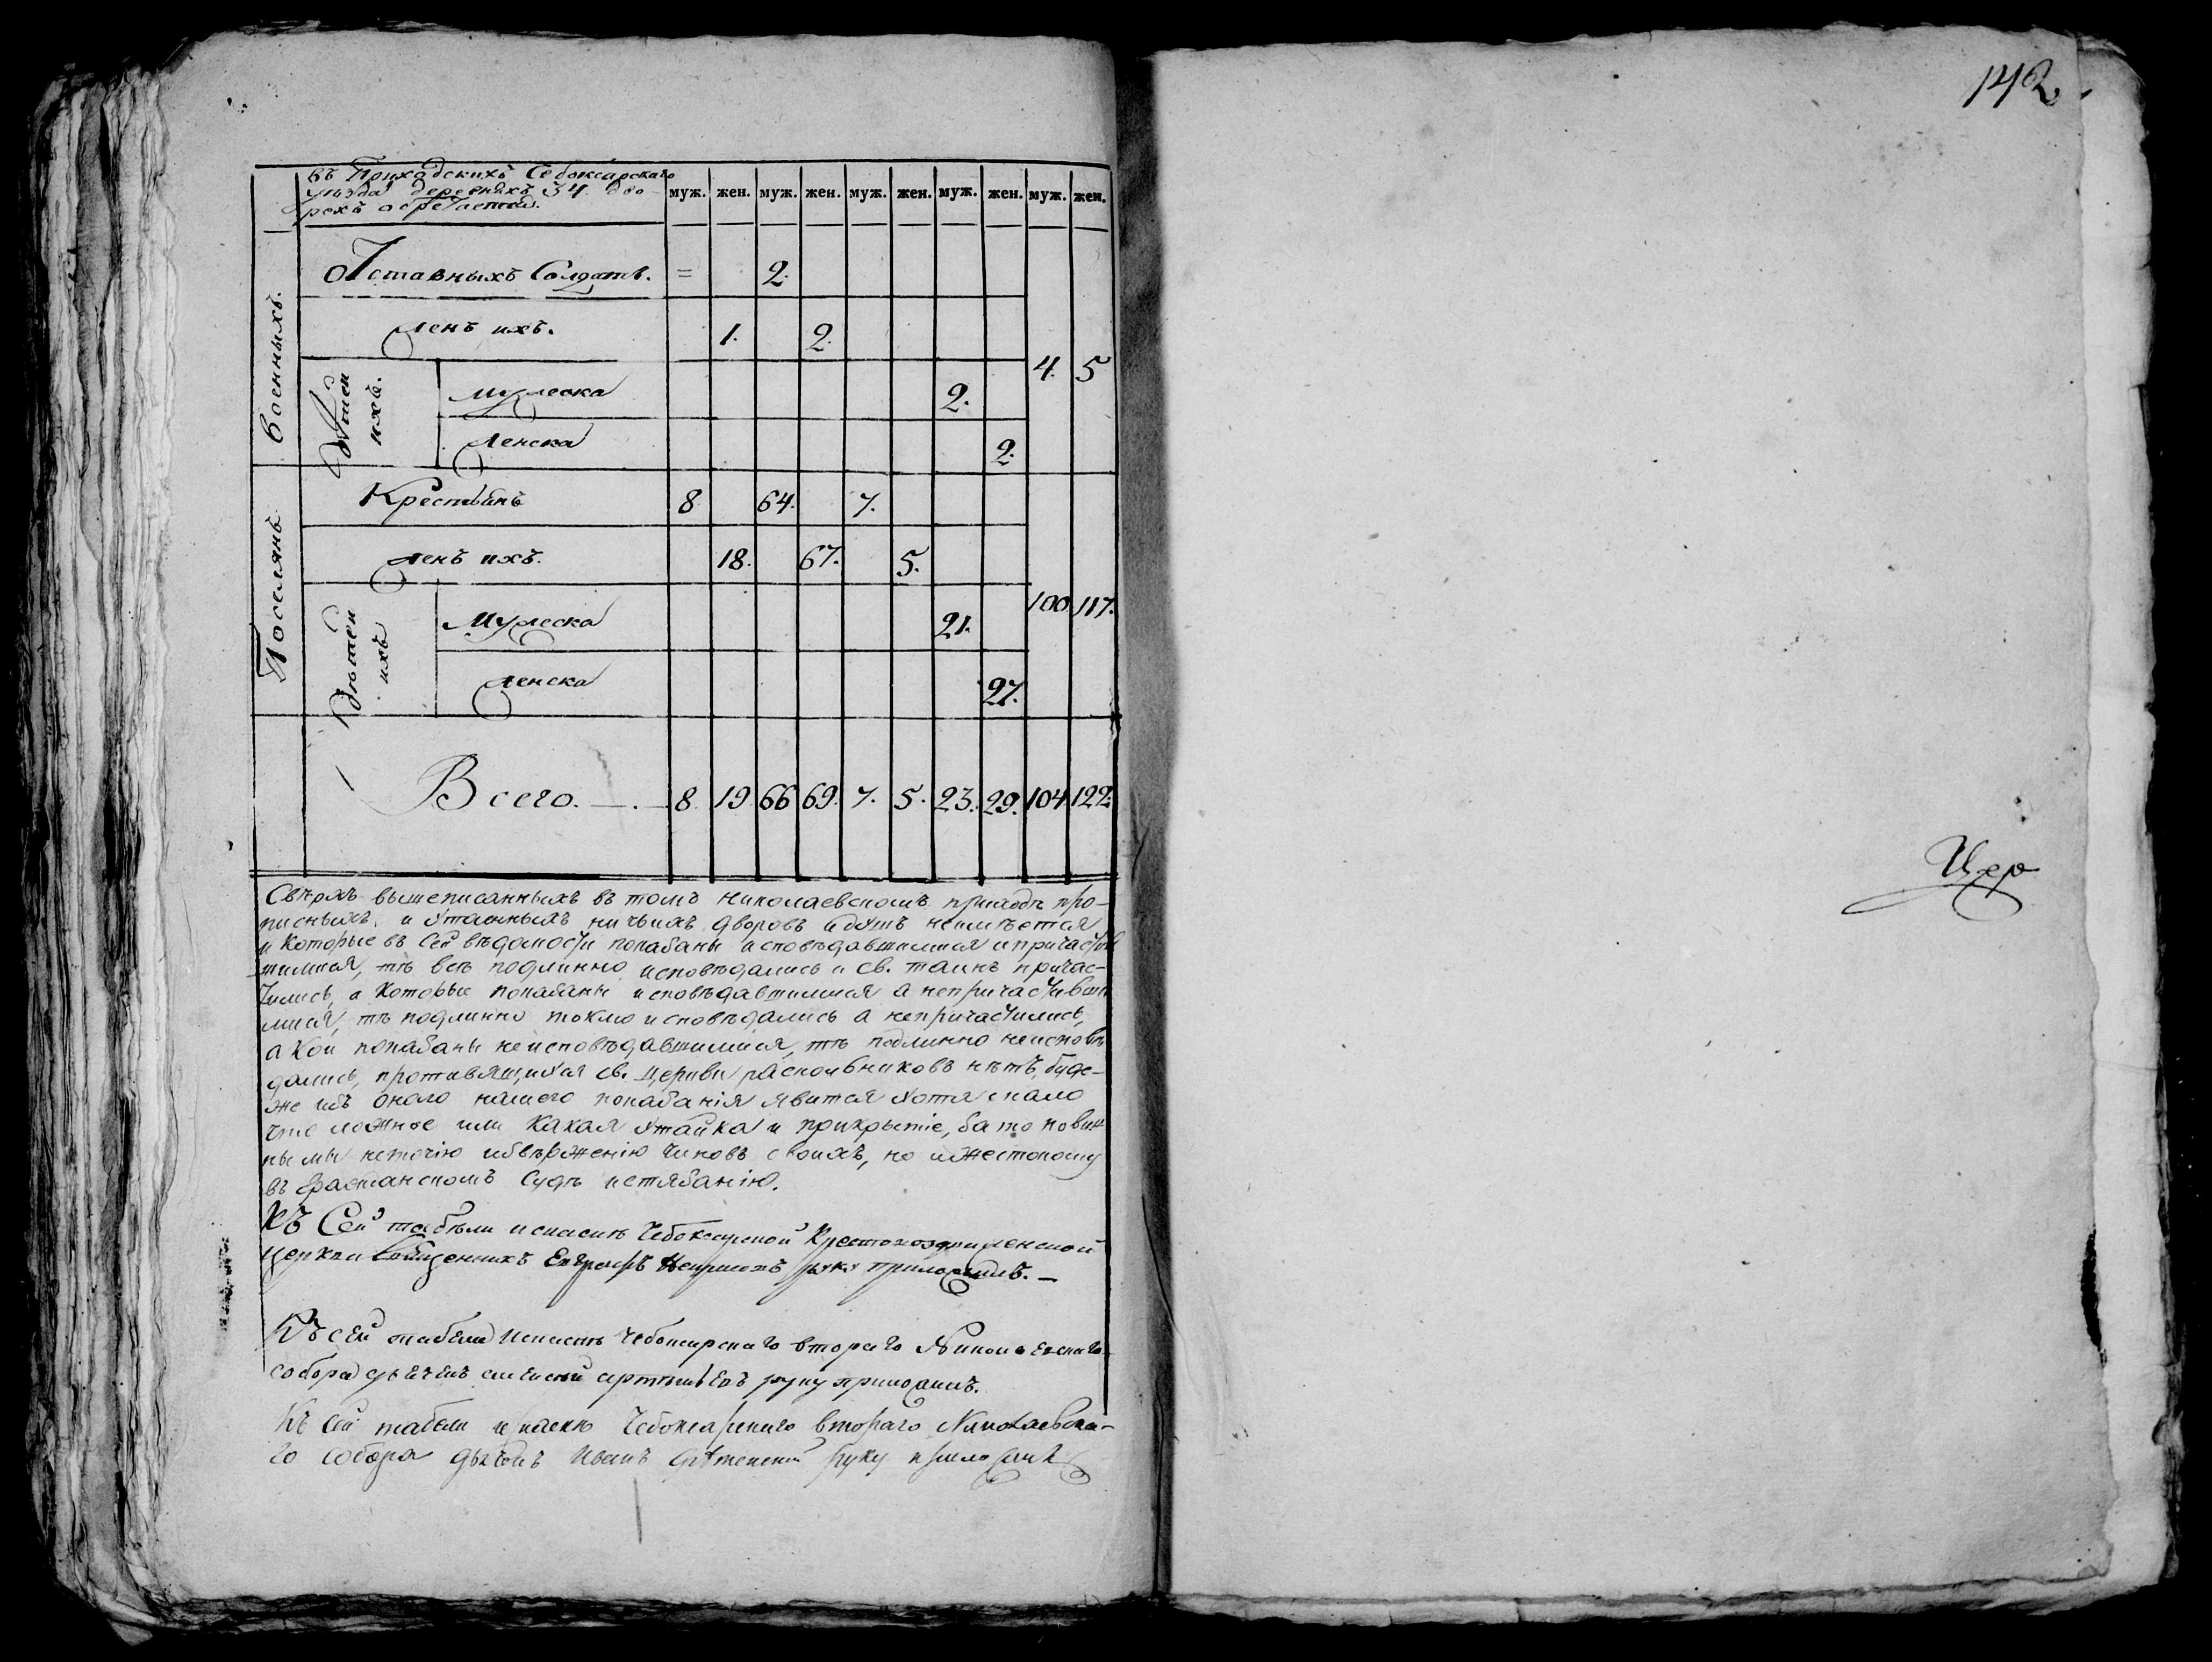 142
Въ Приходскихъ Чебоксарскаго
уѣзда деревняхъ 34 дво-
рахъ
муж. жен. муж. жен. муж. жен. муж. жен. муж. жен.
Военныхъ.
Отставныхъ Солдатъ. = 2.
женъ ихъ. 1. 2.
4. 5
Дѣтей ихъ.
мужеска 2.
женска 2.
Поселянъ
Крестьянъ 8 64. 7.
женъ ихъ. 18. 67. 5.
100 117.
Дѣтей ихъ
Мужеска 21.
женска 27.
Всего. — . — 8. 19 66 69. 7. 5. 23. 29. 104 122.
Сверхъ вышеписанныхъ въ томъ Николаевскомъ приходѣ про-
писныхъ и утаенныхъ ничьихъ дворовъ и душъ неимѣется
и которые въ сей вѣдомости показаны исповѣдавшимися и причастив
шимися, тѣ всѣ подлинно исповѣдались и св. таинъ причас-
тились, а которые показаны исповѣдавшимися а непричастивши
мися, тѣ подлинно токмо исповѣдались а непричастились,
а кои показаны неисповѣдавшимися, тѣ подлинно неисповѣ
дались, противящихся св. церкви раскольниковъ нѣтъ, буде-
же изъ онаго нашего показанія явится хотя мало
что ложное или какая утайка и прикрытіе, за то повин
ны мы неточію изверженію чиновъ своихъ, но и жестокому
въ гражданскомъ судѣ истязанію.
Къ Сей табели и Чебоксарской Крестовоздвиженской
церкви Священникъ руку приложилъ. —
Къ сей табели Чебоксарскаго втораго Николаевскаго
собора руку приложилъ.
Къ сей табели Чебоксарскаго втораго Николаевска-
го собора Иванъ руку приложилъ
Цер